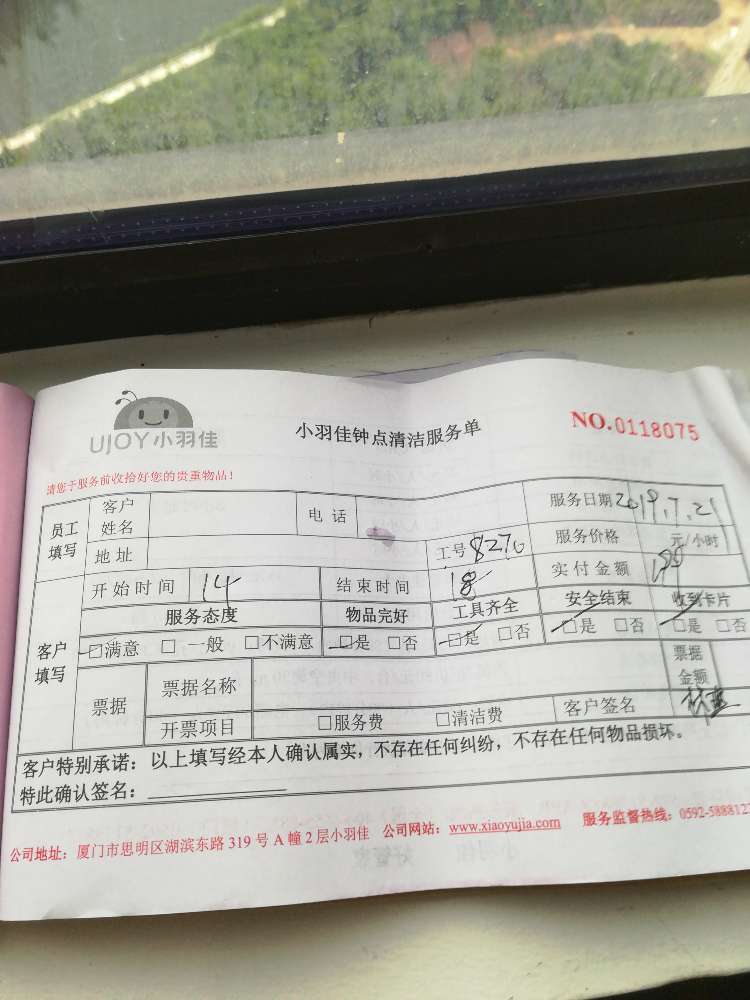 UJOY小羽佳
小羽佳钟点清洁服务单
NO.0118075
请您于服务前收拾好您的贵重物品！
员工填写 客户姓名 电话 服务日期 2019.7.21
地址 工号 8270 服务价格 元/小时
客户填写 开始时间 14 结束时间 18 实付金额
服务态度 物品完好 工具齐全 安全结束 收到卡片
□满意 □一般 □不满意 □是 □否 □是 □否 □是 □否 □是 □否
票据 票据名称 票据金额
开票项目 □服务费 □清洁费 客户签名
客户特别承诺：以上填写经本人确认属实，不存在任何纠纷，不存在任何物品损坏。
特此确认签名：
公司地址：厦门市思明区湖滨东路319号A幢2层小羽佳 公司网站：www.xiaoyujia.com 服务监督热线：0592-5888123